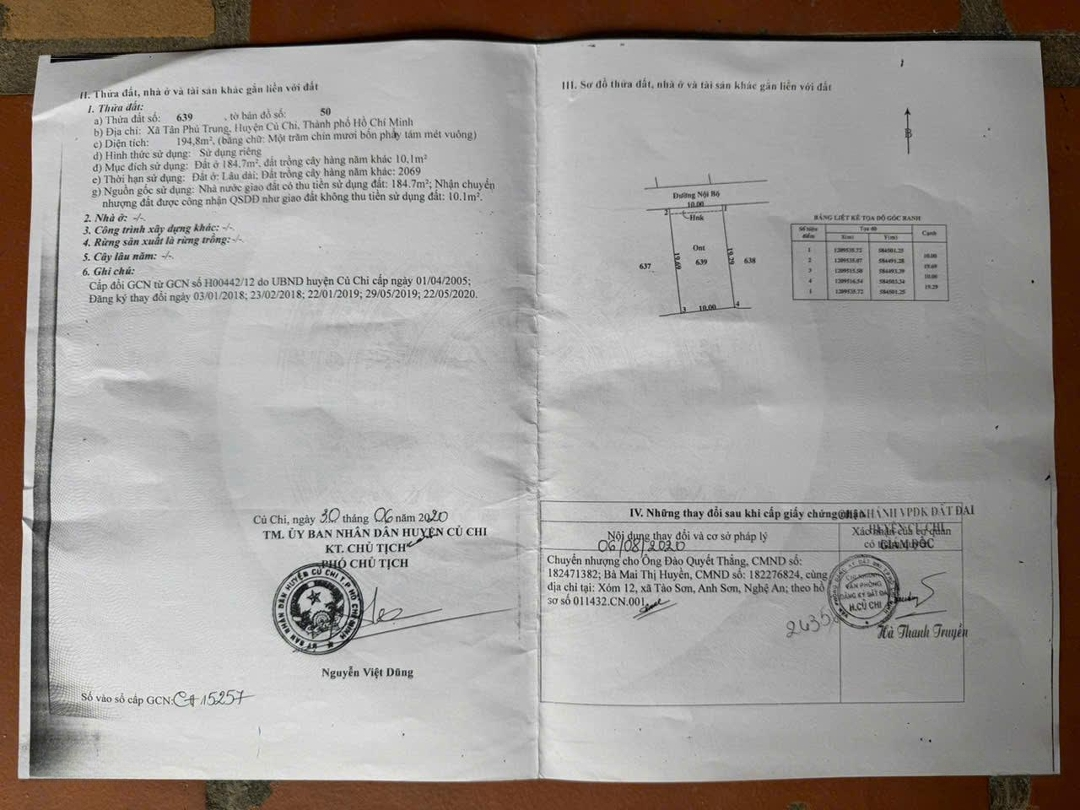 II. Thửa đất, nhà ở và tài sản khác gắn liền với đất
1. Thửa đất:
a) Thửa đất số: 639 , tờ bản đồ số: 50
b) Địa chỉ: Xã Tân Phú Trung, Huyện Củ Chi, Thành phố Hồ Chí Minh
c) Diện tích: 194,8m², (bằng chữ: Một trăm chín mươi bốn phẩy tám mét vuông)
d) Hình thức sử dụng: Sử dụng riêng
đ) Mục đích sử dụng: Đất ở 184,7m², đất trồng cây hàng năm khác 10,1m²
e) Thời hạn sử dụng: Đất ở: Lâu dài; Đất trồng cây hàng năm khác: 2069
g) Nguồn gốc sử dụng: Nhà nước giao đất có thu tiền sử dụng đất: 184.7m²; Nhận chuyển
nhượng đất được công nhận QSDĐ như giao đất không thu tiền sử dụng đất: 10.1m².
2. Nhà ở: -/-.
3. Công trình xây dựng khác: -/-.
4. Rừng sản xuất là rừng trồng: -/-.
5. Cây lâu năm: -/-.
6. Ghi chú:
Cấp đổi GCN từ GCN số H00442/12 do UBND huyện Củ Chi cấp ngày 01/04/2005;
Đăng ký thay đổi ngày 03/01/2018; 23/02/2018; 22/01/2019; 29/05/2019; 22/05/2020.
Củ Chi, ngày 30 tháng 06 năm 2020
TM. ỦY BAN NHÂN DÂN HUYỆN CỦ CHI
KT. CHỦ TỊCH
PHÓ CHỦ TỊCH
ỦY BAN NHÂN DÂN HUYỆN CỦ CHI T.P HỒ CHÍ MINH
Nguyễn Việt Dũng
Số vào sổ cấp GCN: CH 15257
III. Sơ đồ thửa đất, nhà ở và tài sản khác gắn liền với đất
B
Đường Nội Bộ
10.00
2 1
Hnk
Ont
19.69 639 19.29
637 638
3 10.00 4
BẢNG LIỆT KÊ TỌA ĐỘ GÓC RANH
Số hiệu điểm Tọa độ Cạnh
X(m) Y(m)
1 1209535.72 584501.25
10.00
2 1209535.07 584491.28
19.69
3 1209515.50 584493.39
10.00
4 1209516.54 584503.34
19.29
1 1209535.72 584501.25
IV. Những thay đổi sau khi cấp giấy chứng nhận
CHI NHÁNH VPĐK ĐẤT ĐAI
HUYỆN CỦ CHI
GIÁM ĐỐC
Nội dung thay đổi và cơ sở pháp lý
Xác nhận của cơ quan
có thẩm quyền
06/08/2020
Chuyển nhượng cho Ông Đào Quyết Thắng, CMND số:
182471382; Bà Mai Thị Huyền, CMND số: 182276824, cùng
địa chỉ tại: Xóm 12, xã Tào Sơn, Anh Sơn, Nghệ An; theo hồ
sơ số 011432.CN.001
CHI NHÁNH
VĂN PHÒNG
ĐĂNG KÝ ĐẤT ĐAI
H.CỦ CHI
Hà Thanh Truyền